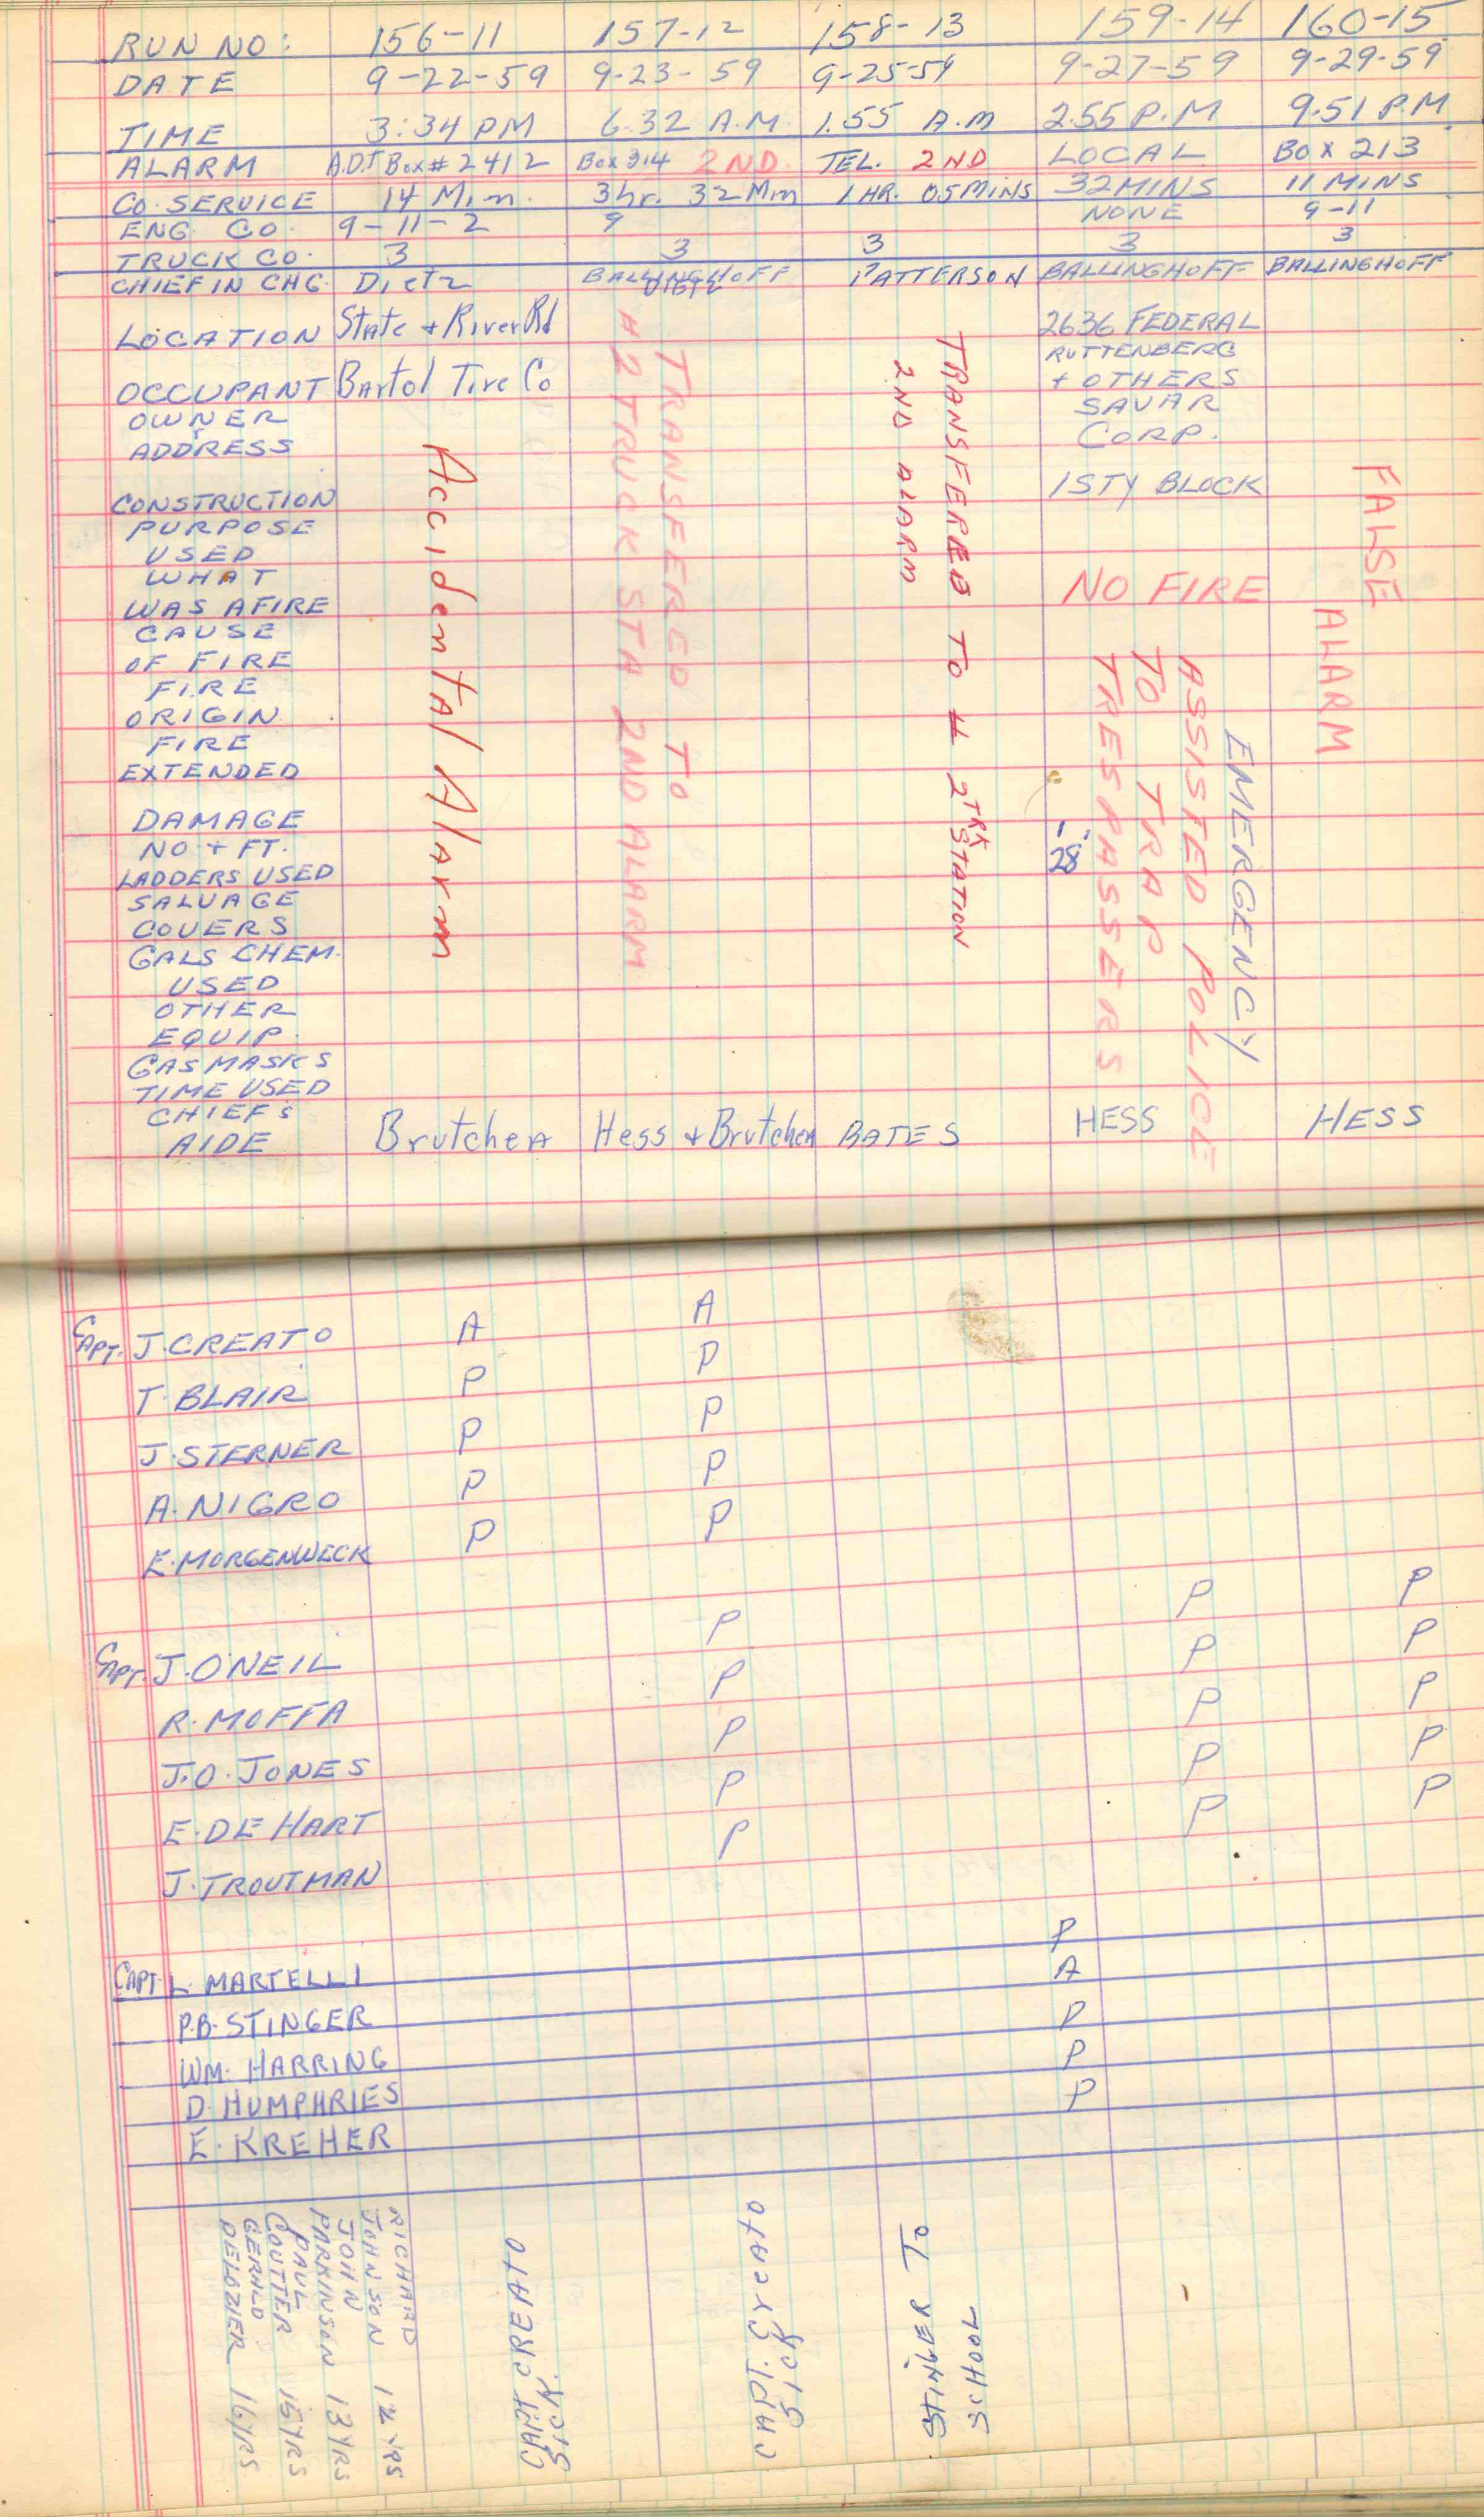 RUN NO: 156-11 157-12 158-13 159-14 160-15
DATE 9-22-59 9-23-59 9-25-59 9-27-59 9-29-59
TIME 3:34 PM 6.32 A.M. 1.55 A.M 2.55 P.M 9.51 P.M
ALARM A.D.T Box # 2412 Box 314 2ND TEL. 2ND LOCAL BOX 213
CO. SERVICE 14 Min. 3hr. 32 Min 1 HR. 05 MINS 32 MINS 11 MINS
ENG. CO. 9-11-2 9 NONE 9-11
TRUCK CO. 3 3 3 3 3
CHIEF IN CHG. Dietz BALLINGHOFF DIETZ PATTERSON BALLINGHOFF BALLINGHOFF
LOCATION State + River Rd 2636 FEDERAL
OCCUPANT Bartol Tire Co RUTTENBERG
+ OTHERS
OWNER SAVAR
+
ADDRESS CORP.
CONSTRUCTION 1 STY BLOCK
PURPOSE
USED
WHAT
WAS AFIRE
CAUSE
OF FIRE
FIRE
ORIGIN
FIRE
EXTENDED
DAMAGE
NO + FT. 1-28'
LADDERS USED
SALVAGE
COVERS
GALS CHEM.
USED
OTHER
EQUIP.
GAS MASKS
TIME USED
CHIEFS
AIDE Brutchea Hess + Brutchea BATES HESS HESS
Accidental Alarm
TRANSFERED TO
#2 TRUCK STA 2ND ALARM
TRANSFERED TO # 2 TRK STATION
2ND ALARM
NO FIRE
EMERGENCY
ASSISTED POLICE
TO TRAP
TRESPASSERS
FALSE
ALARM
CAPT. J. CREATO A A
T. BLAIR P P
J. STERNER P P
A. NIGRO P P
E. MORGENWECK P P
CAPT. J. O'NEIL P P P
R. MOFFA P P P
J.O. JONES P P P
E. DE HART P P P
J. TROUTMAN P P P
CAPT. L. MARTELLI P
P.B. STINGER A
WM. HARRING P
D. HUMPHRIES P
E. KREHER P
RICHARD
JOHNSON 12 YRS
JOHN
PARKINSON 13 YRS
PAUL
COUTTER 15 YRS
GERALD
DELOZIER 16 YRS
CAPT CREATO
SICK.
CAPT. Creato
SICK
STINGER TO
SCHOOL